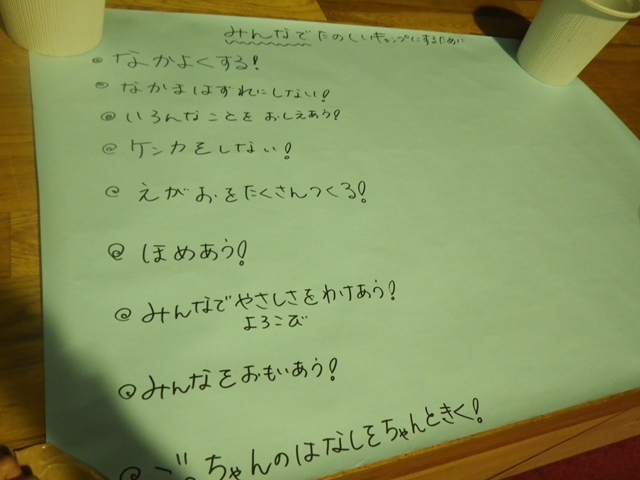 みんなでたのしいキャンプにするために
◎なかよくする!
◎なかまはずれにしない!
◎いろんなことをおしえあう!
◎ケンカをしない!
◎えがおをたくさんつくる!
◎ほめあう!
◎みんなでやさしさをわけあう!
よろこび
◎みんなをおもいあう!
ちゃんのはなしをちゃんときく!